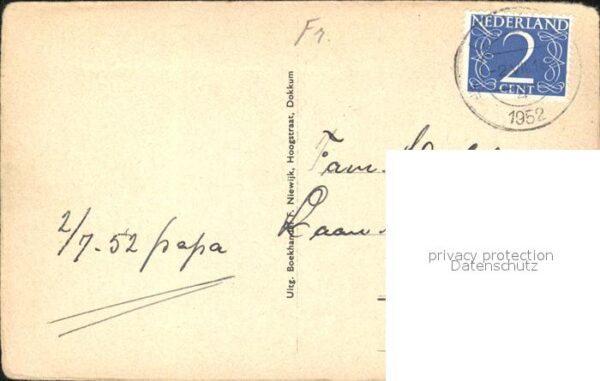 Fr.
NEDERLAND
2
CENT
1952
Uitg. Boekhandel F. Niewijk, Hoogstraat, Dokkum
Fam.
2/7-52 papa
privacy protection
Datenschutz